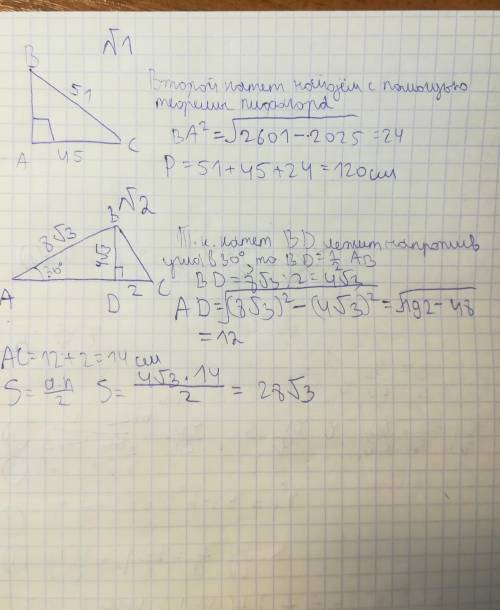 √1
B
51
A 45 C
Второй катет найдём с помощью
теоремы пифагора
BA² = √2601 - 2025 = 24
P = 51 + 45 + 24 = 120 см
√2
B
8√3
4√3
30°
A D 2 C
Т.к. катет BD лежит напротив
угла в 30°, то BD = 1/2 AB
BD = 8√3 : 2 = 4√3
AD = √(8√3)² - (4√3)² = √192 - 48
= 12
AC = 12 + 2 = 14 см
S = a·h/2 S = 4√3 · 14/2 = 28√3